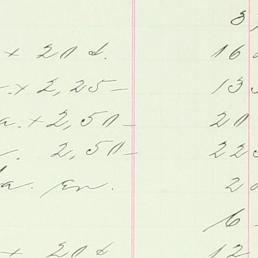 3,
x 20 d. 16
. x 2,25 - 13
a. x 2,50 - 20
. 2,50 - 225
a. En. 2
6 -
x 20 d 12